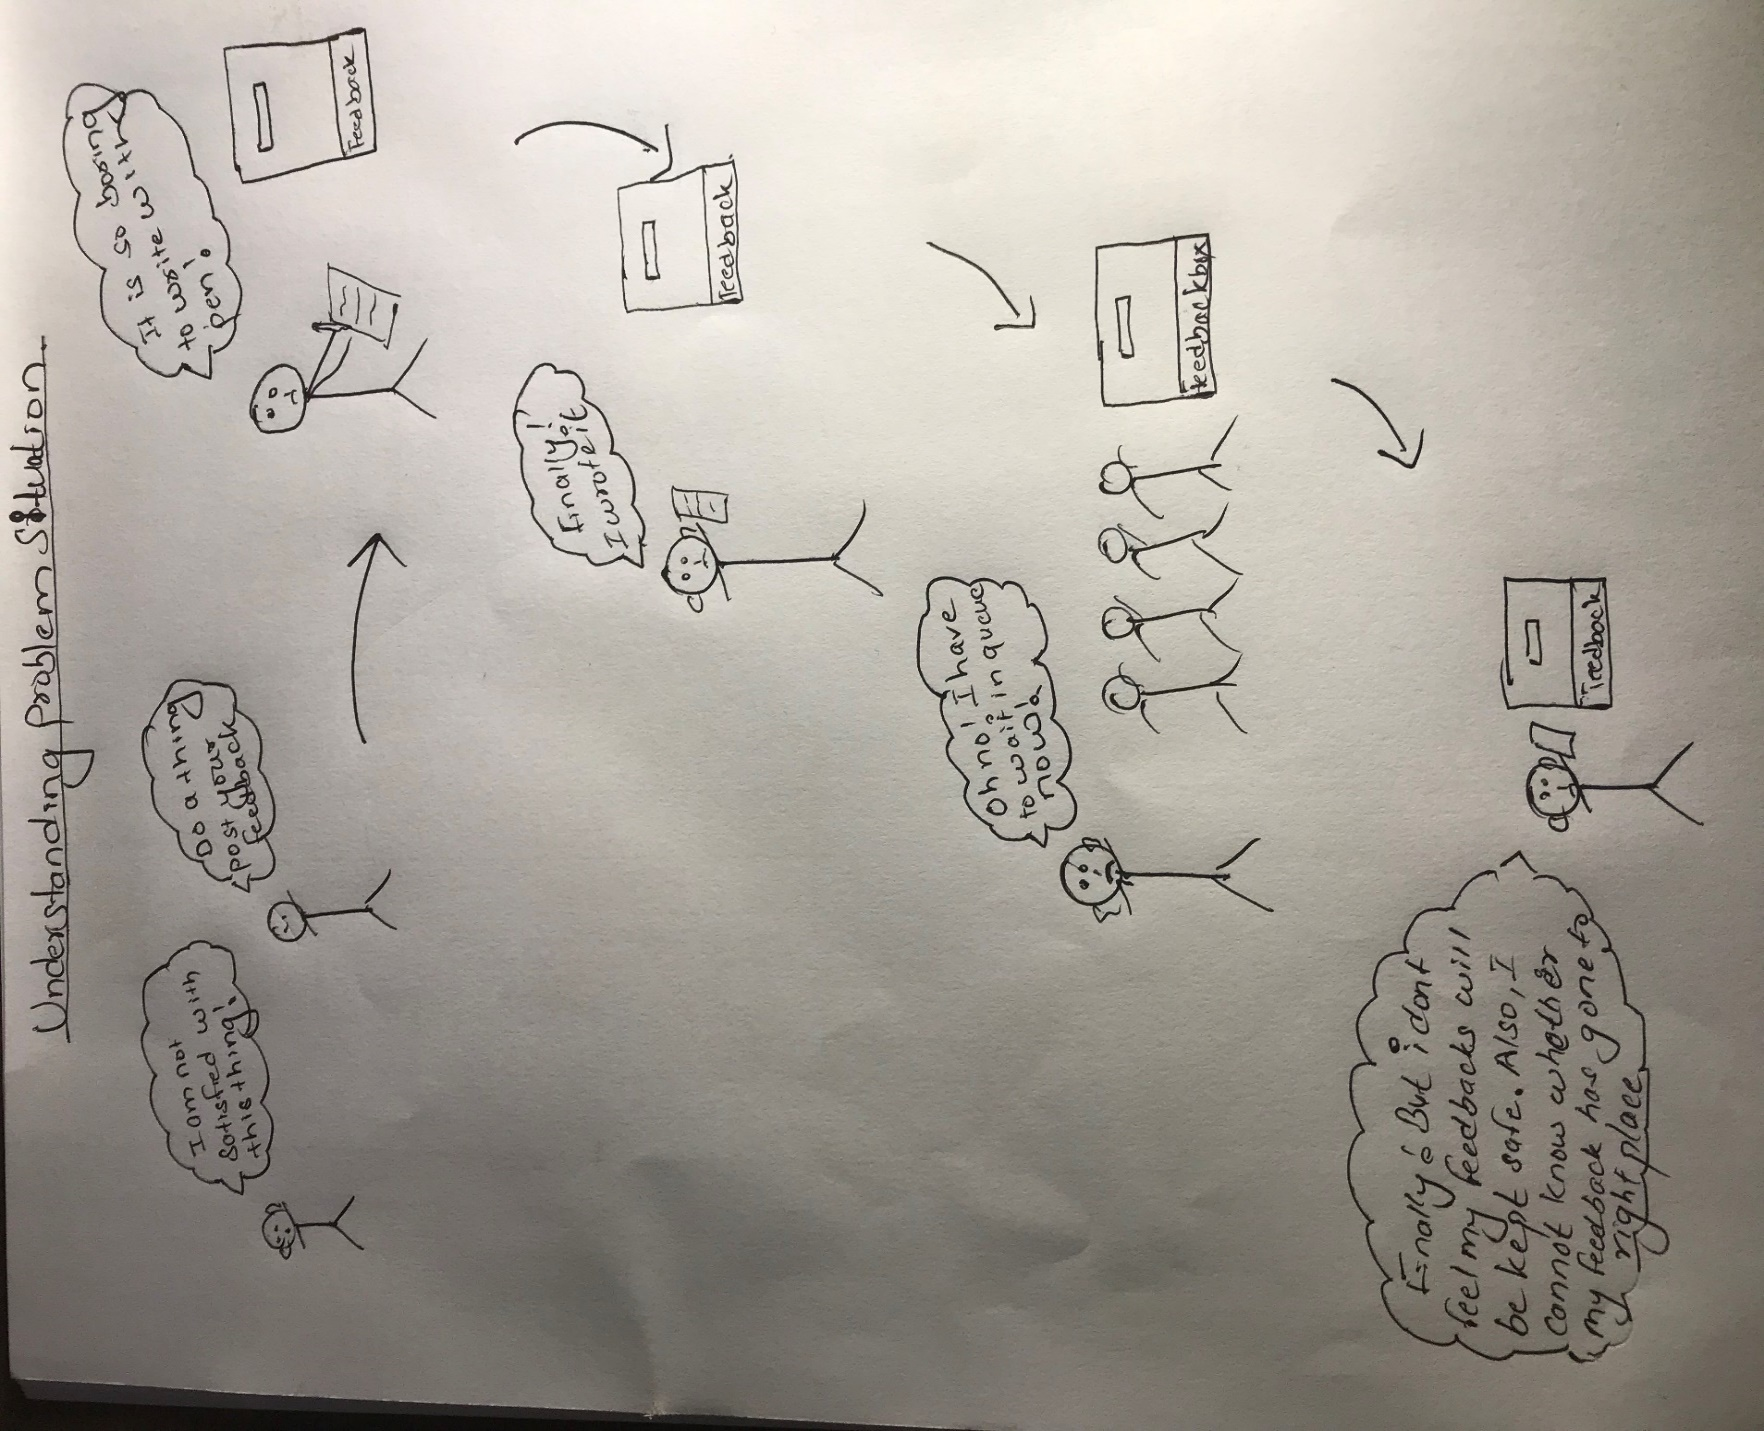 Understanding Problem Situation.
I am not
satisfied with
this thing!
Do a thing
post your
feedback
It is so boring
to write with
pen!
Feedback
Finally!
I wrote it
Feedback
Oh no! I have
to wait in queue
now!
Feedbackbox
Finally! But i dont
feel my feedbacks will
be kept safe. Also, I
cannot know whether
my feedback has gone to
right place
Feedback